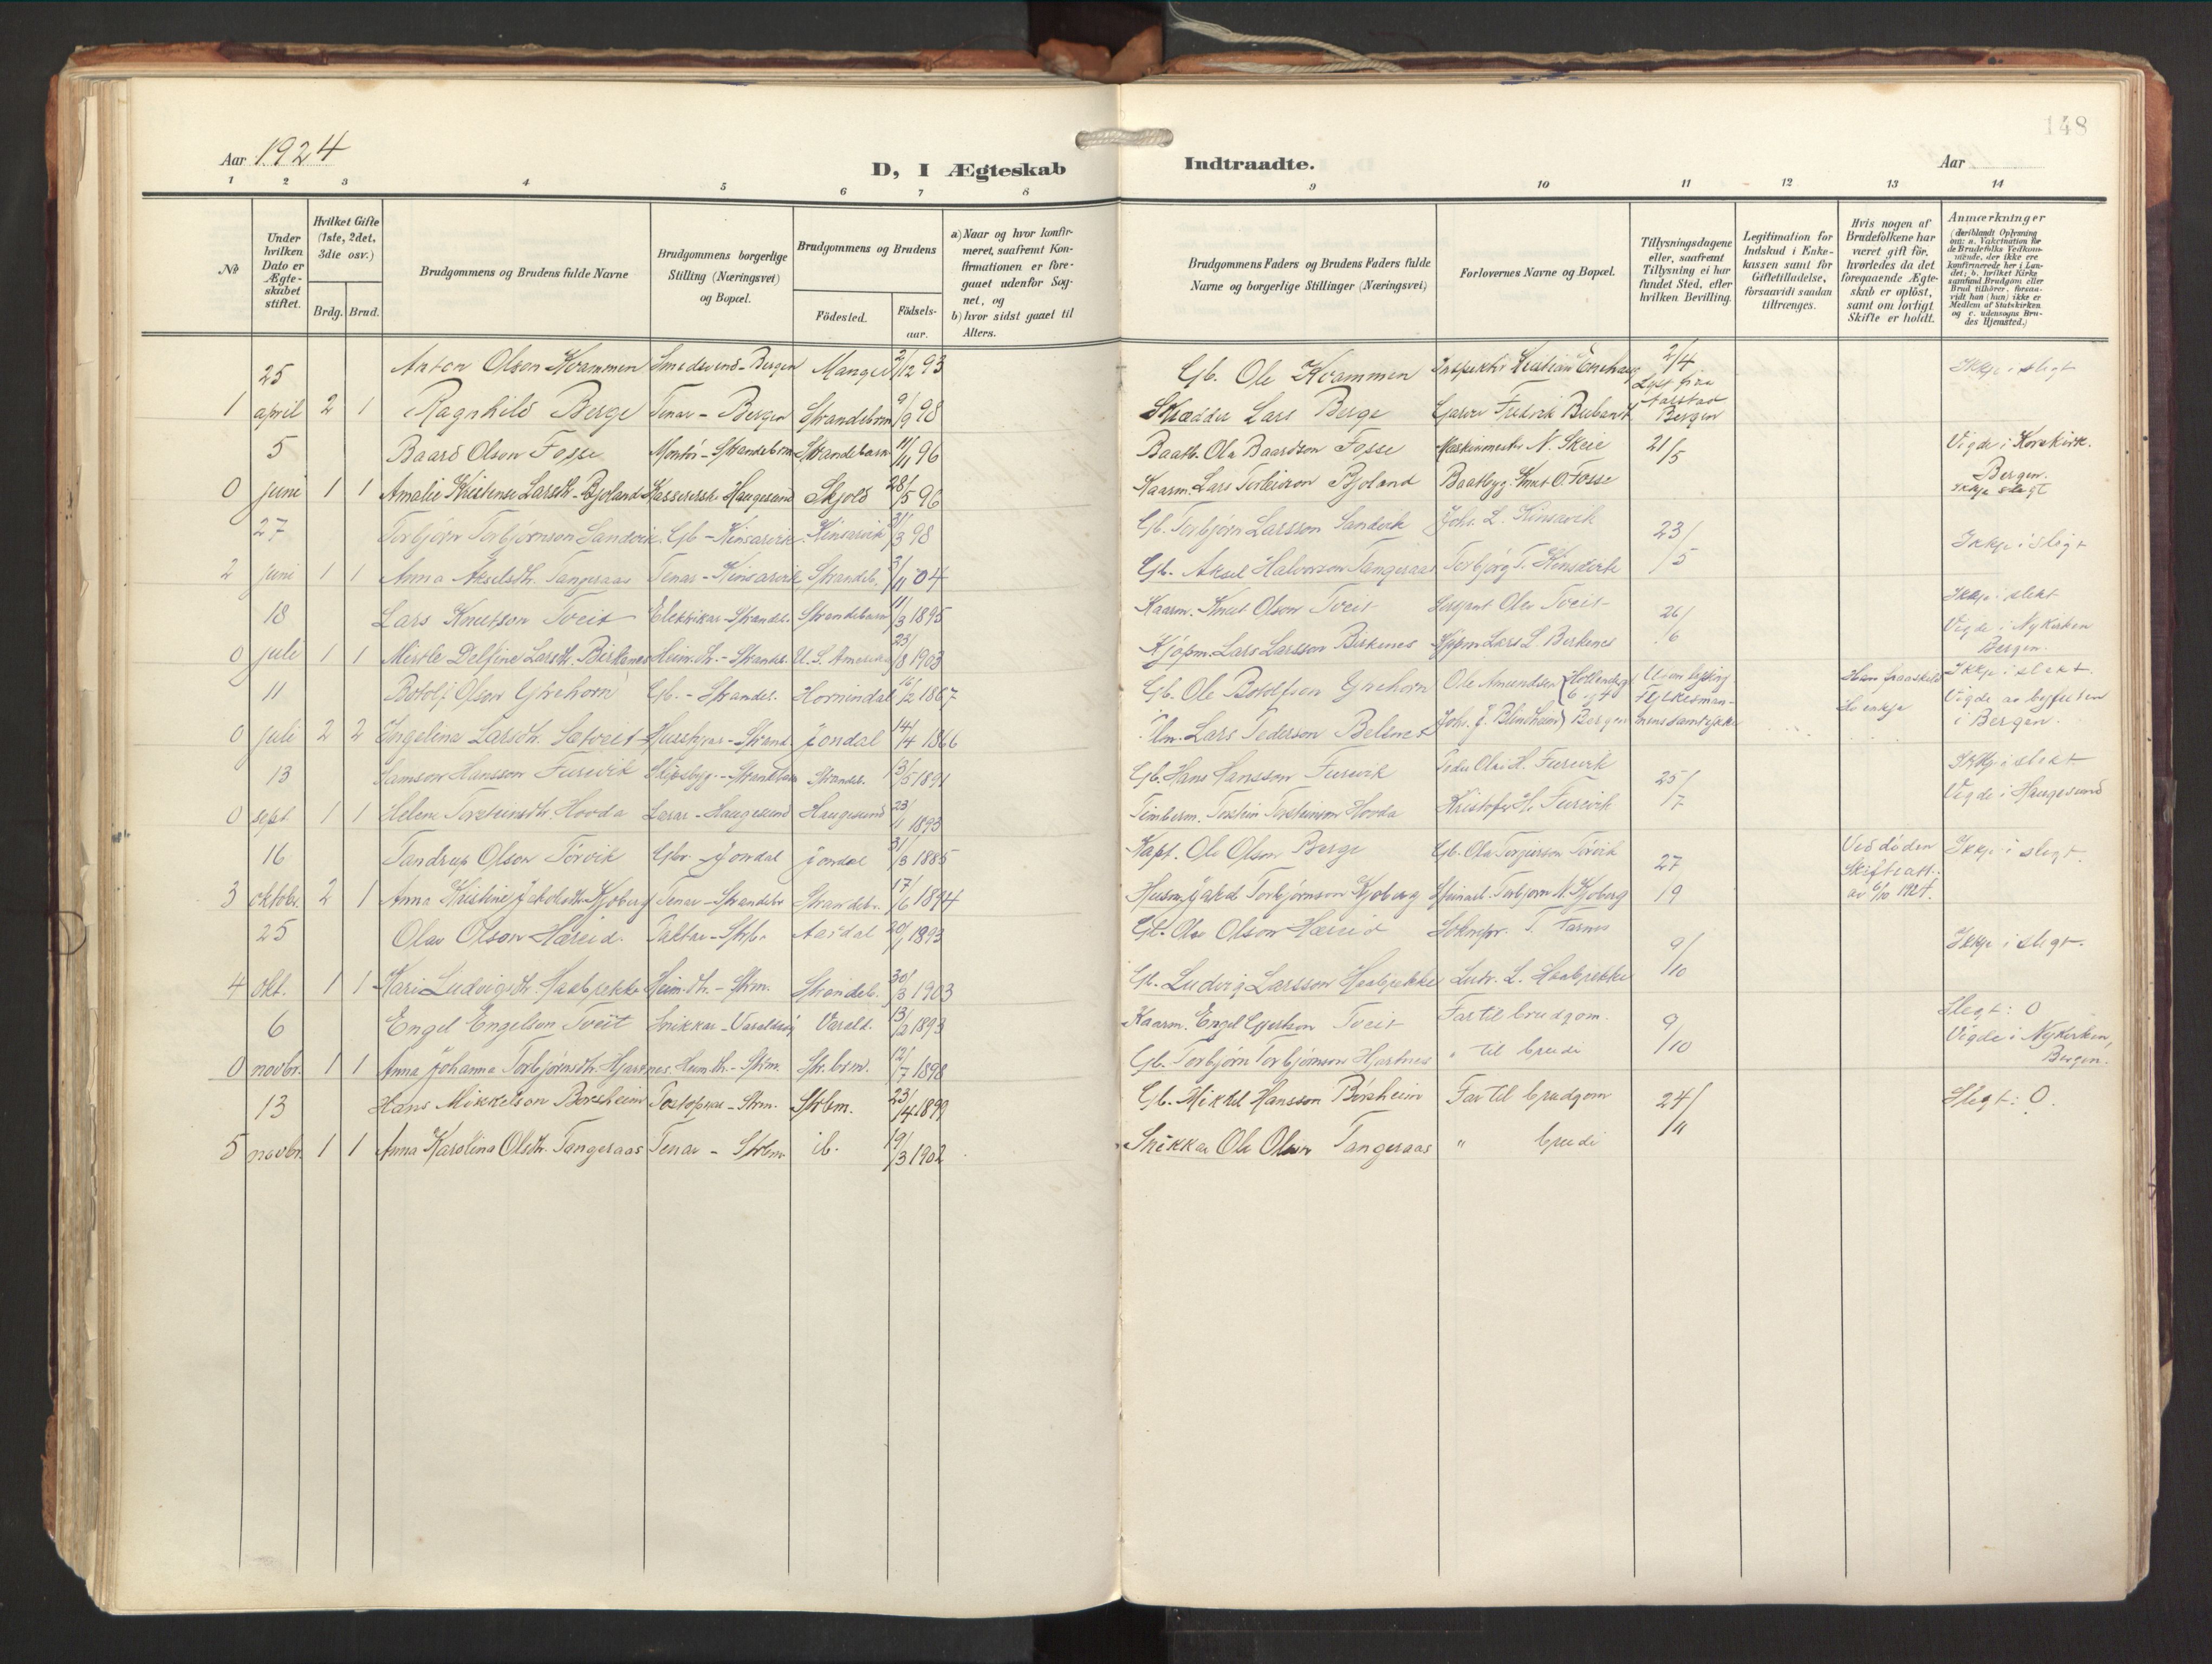 148
Aar 1924
D, I Ægteskab Indtraadte.
Aar
1 2 3 4 5 6 7 8 9 10 11 12 13 14
No
Under hvilken Dato er Ægteskabet stiftet.
Hvilket Gifte (1ste, 2det, 3die osv.)
Brdg. Brud.
Brudgommens og Brudens fulde Navne
Brudgommens borgerlige Stilling (Næringsvei) og Bopæl.
Brudgommens og Brudens
Födested.
Födselsaar.
a) Naar og hvor konfirmeret, saafremt Konfirmationen er foregaaet udenfor Sognet, og
b) hvor sidst gaaet til Alters.
Brudgommens Faders og Brudens Faders fulde Navne og borgerlige Stillinger (Næringsvei)
Forlovernes Navne og Bopæl.
Tillysningsdagene eller, saafremt Tillysning ei har fundet Sted, efter hvilken Bevilling.
Legitimation for Indskud i Enkekassen samt for Giftetilladelse, forsaavidt saadan tiltrænges.
Hvis nogen af Brudefolkene har været gift för, hvorledes da det foregaaende Ægteskab er oplöst, samt om lovligt Skifte er holdt.
Anmærkninger (deriblandt Oplysning om: a. Vakcination for de Brudefolks Vedkommende, der ikke ere konfirmerede her i Landet; b. hvilket Kirkesamfund Brudgom eller Brud tilhörer, forsaavidt han (hun) ikke er Medlem af Statskirken og c. udensogns Brudes Hjemsted.)
25 Anton Olson Kvammen Smedsvend - Bergen Manger 2/12 93 Gb. Ole Kvammen 2/4 Ikkje i slegt
1 april 2 1 Ragnhild Berge Tenar - Bergen Strandebarm 9/9 98 Skrædder Lars Berge Lyst fraa Aarstad Bergen
5 Baard Olson Fosse Montör - Strandebrm Strandebarm 11/11 96 Baatb. Ola Baardson Fosse Maskinmester N. Skeie 21/5 Vigde i Korskirk. Bergen.
0 juni 1 1 Amalie Kristense Larsdt. Bjoland Kassererske Haugesund Skjold 28/5 96 Kaarm. Lars Torbeinson Bjoland Baatbyg. Knut O. Fosse Ikkje slegt
27 Torbjörn Torbjörnson Sandvik Gb - Kinsarvik Kinsarvik 31/3 98 Gb. Torbjörn Larsson Sandvik Joh. L. Kinsarvik 23/5 Ikkje i slegt
2 juni 1 1 Anna Akselsdt. Tangeraas Tenar - Kinsarvik Strandeb. 3/11 04 Gb. Aksel Halvorson Tangeraas Torbjörg T. Kinsarvik
18 Lars Knutson Tveit Elektrikar - Strandeb. Strandebarm 11/3 1895 Kaarm. Knut Olson Tveit Sersjant Olav Tveit 26/6 Ikkje i slekt
0 juli 1 1 Mirtle Delfine Larsdt. Birkenes Heim.dt. - Strandb. U. S. Amerika 23/8 1903 Kjöpm. Lars Larsson Birkenes Kjöpm Lars L. Birkenes Vigde i Nykirken Bergen.
11 Botolf Olson Grehorn Gb. - Strandeb. Hornindal 16/2 1867 Gb. Ole Botolfson Grehorn Ole Amundsen Utan lysing Ikkje i slekt.
0 juli 2 2 Ingelina Larsdt. Sætveit Husstyrar - Strand. Jondal 14/4 1866 Um. Lars Pederson Belsnes Joh. J. Blindheim Bergen Fylkesmannens samtykke Ho enkja Vigde av byfuten i Bergen.
13 Samson Hansson Furevik Skipsbyg. - Strandebarm Strandeb. 13/5 1891 Gb. Hans Hansson Furevik Peder Olai H. Furevik 25/7 Ikkje i slekt
0 sept. 1 1 Helene Torsteinsdt. Hovda Lærar - Haugesund Haugesund 23/11 1893 Timberm. Torstein Torsteinson Hovda Kristofer H. Furevik Vigde i Haugesund
16 Tandrup Olson Törvik Gbr. - Jondal Jondal 31/3 1885 Kapt. Ole Olson Berge Gb. Ola Torgerson Törvik 27 Ved döden Ikkje i slegt.
3 oktobr. 2 1 Anna Kristine Jakobsdt. Kjoberg Tenar - Strandebr Strandebr. 17/6 1894 Husm. Jakob Torbjörnson Kjoberg Torbjörn N. Kjoberg 19 Skifteatt. av 6/10 1924.
25 Olav Olson Hæreid. Paktar - Strbr Aardal 20/1 1893 Gb. Ole Olson Hæreid Soknepr. T. Farnes 9/10 Ikkje i slegt.
4 okt. 1 1 Kari Ludvigsdt. Haabrekke Heim.dt. - Strm. Strandeb. 30/3 1903 Gb. Ludvig Larsson Haabrekke Ludv. L. Haabrekke
6 Engel Engelson Tveit Snikkar - Varaldsöy Varald. 13/2 1893 Kaarm. Engel Gjertson Tveit Far til brudgom. 9/10 Slegt: 0
0 novbr. 1 1 Anna Johanna Torbjörnsdt. Hjartnes. Heim.dt. - Strm. Str.brm. 12/7 1898 Gb. Torbjörn Torbjörnson Hjartnes " til brudi Vigde i Nykirken, Bergen.
13 Hans Mikkelson Börsheim Postopnar - Strm. Strbm. 23/4 1899 Gb. Mikkel Hansson Börsheim Far til brudgom 24/11 Slegt: 0.
5 novbr. 1 1 Anna Karolina Olsdt. Tangeraas Tenar - Strbm ib. 19/3 1902 Snikkar Ole Olson Tangeraas " brudi